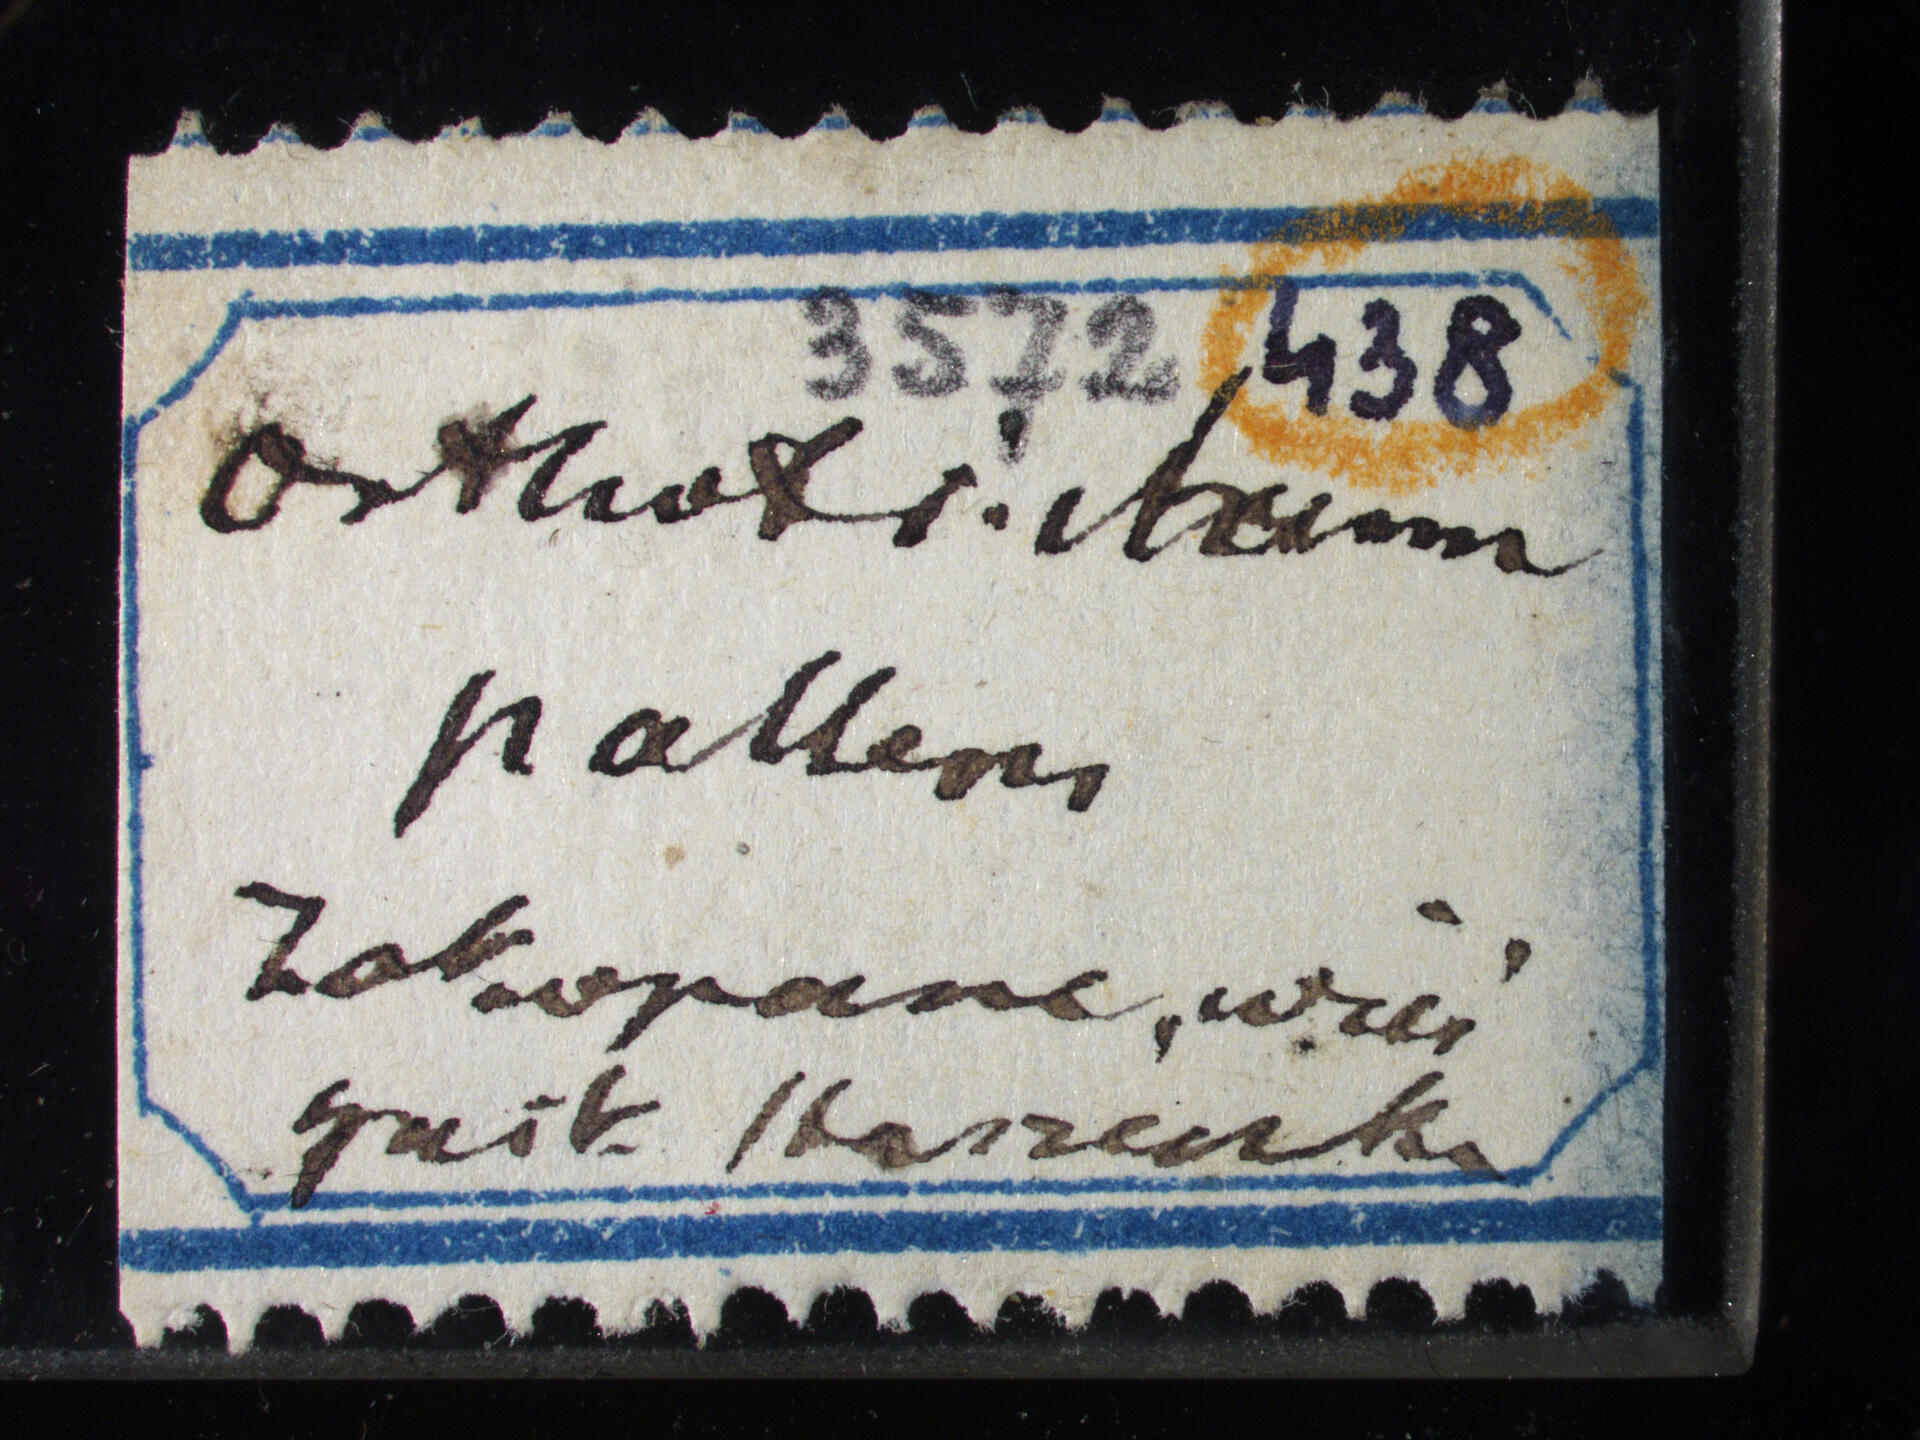 3572 438
Orthotrichum
pallens
Zakopane, wieś